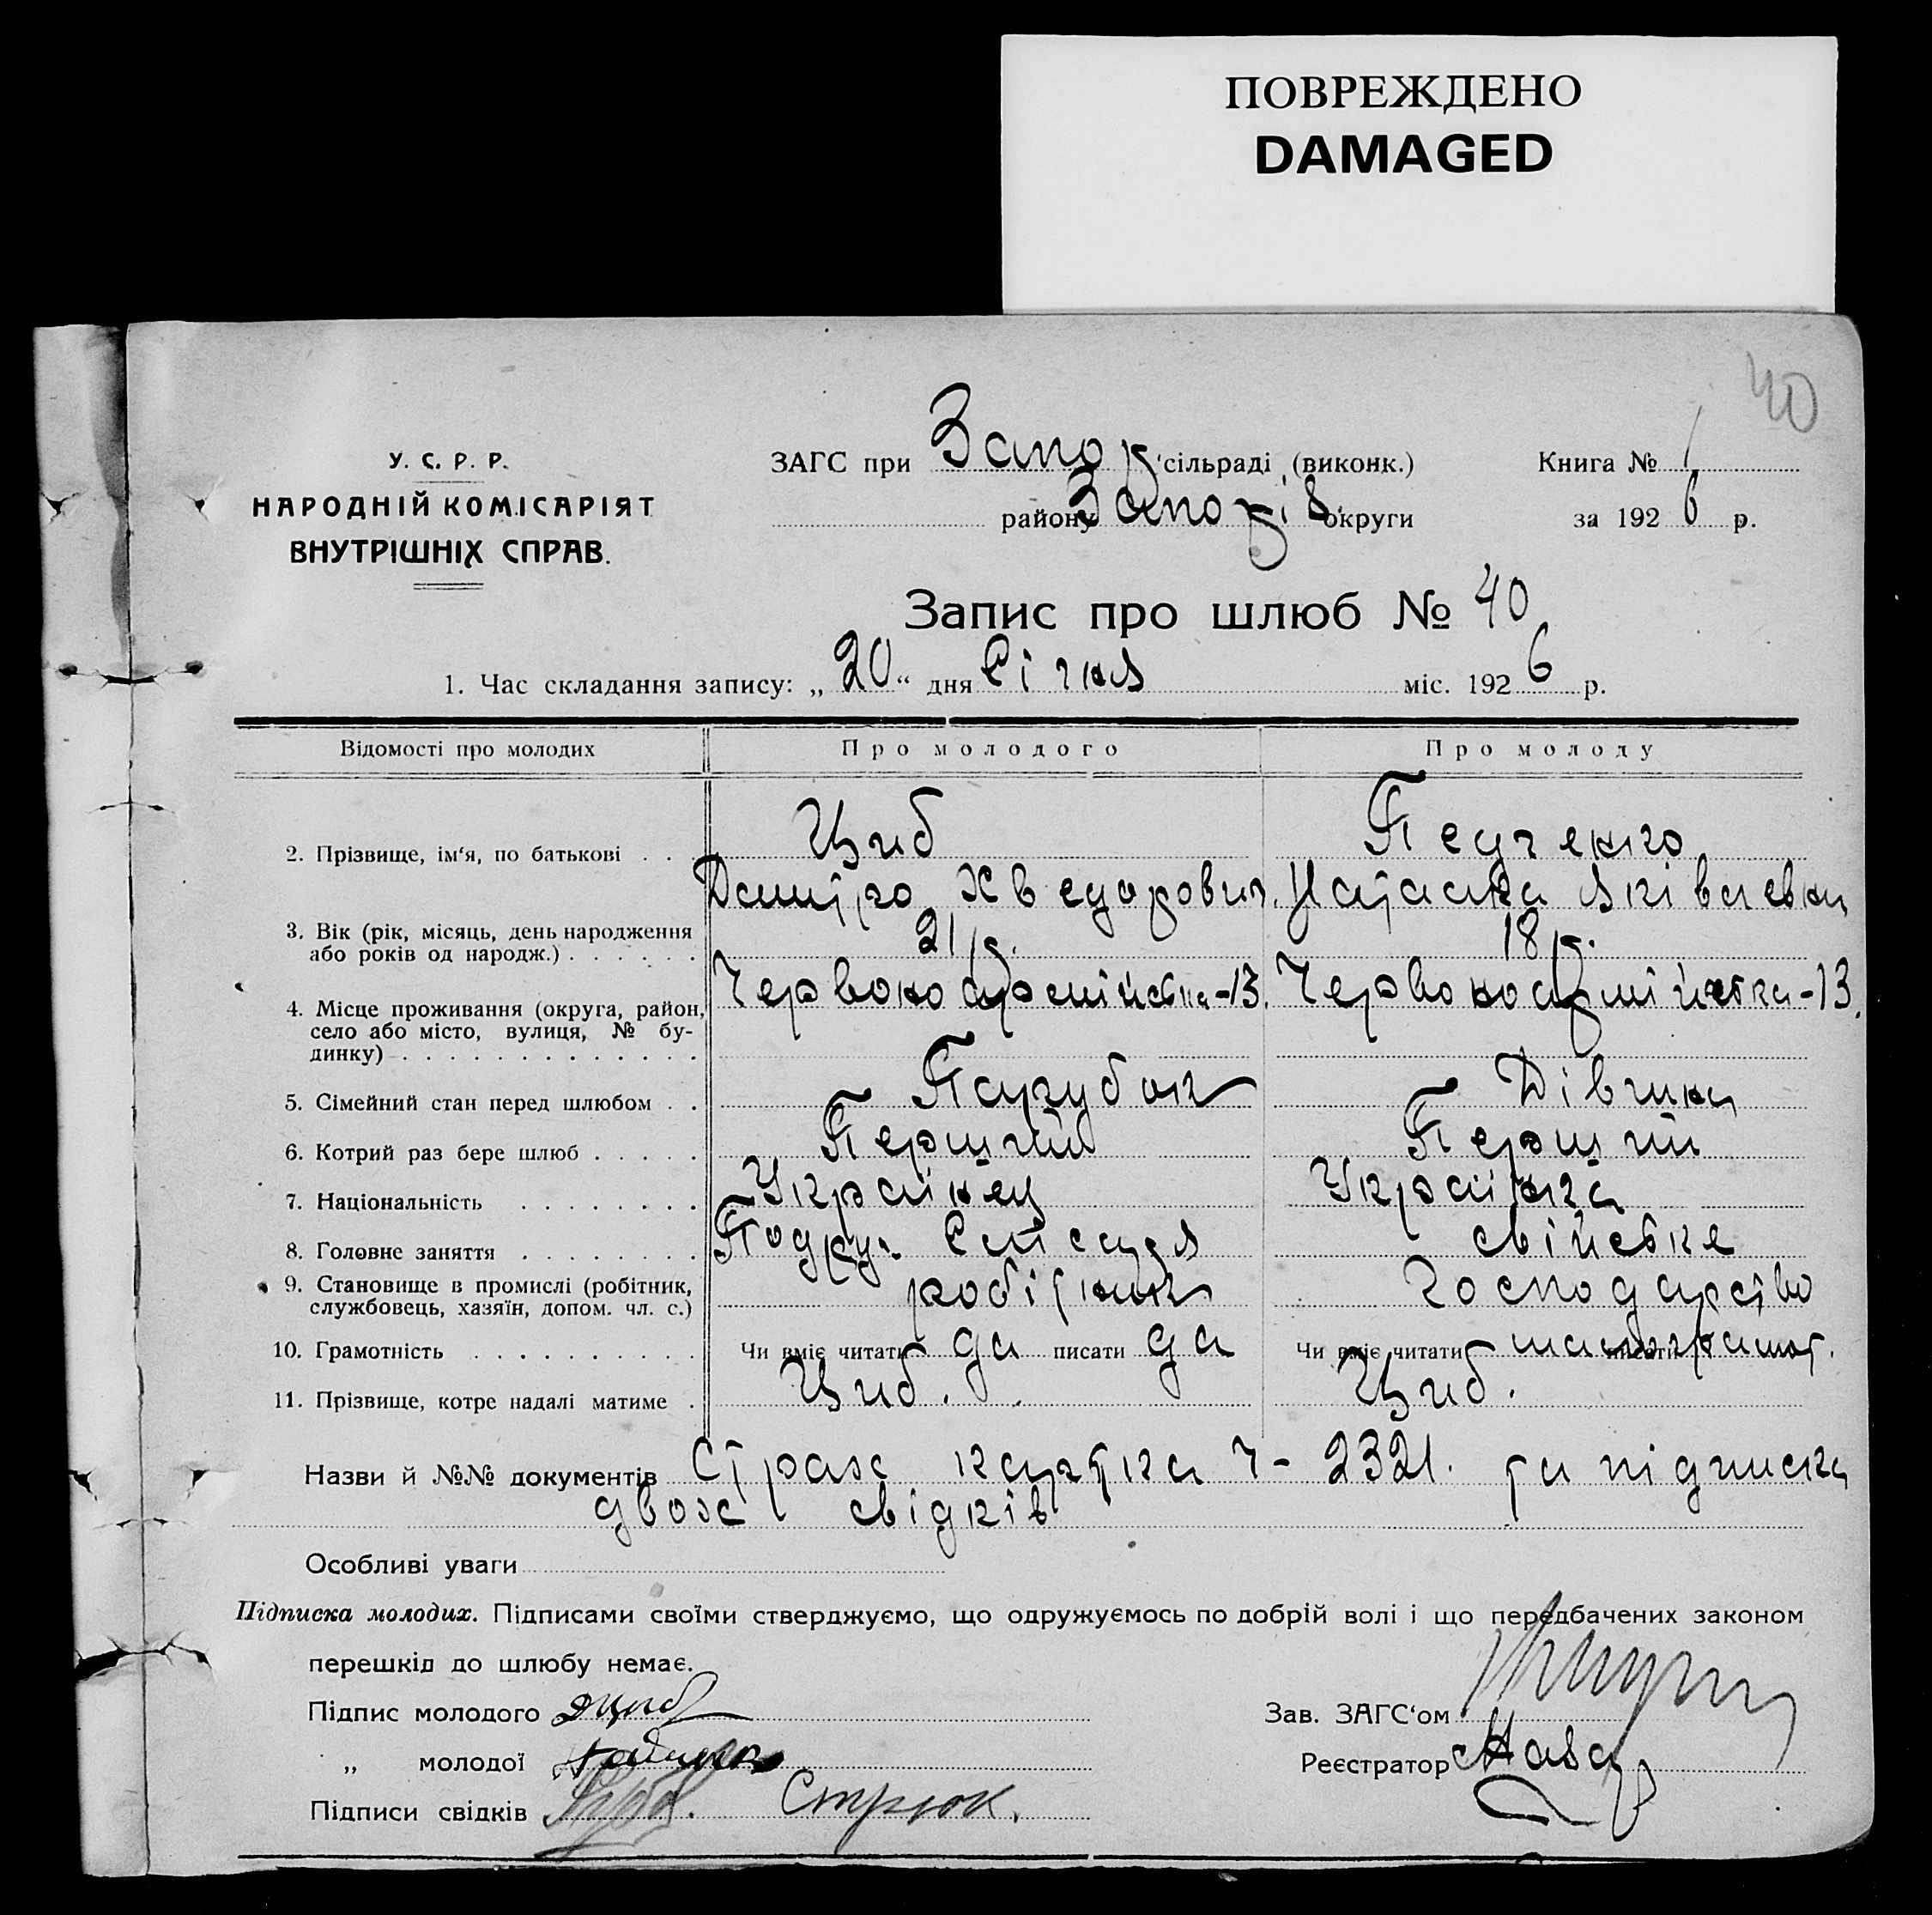 ПОВРЕЖДЕНО
DAMAGED
40
У. С. Р. Р.
НАРОДНІЙ КОМІСАРІЯТ
ВНУТРІШНІХ СПРАВ.
ЗАГС при Запор. сільраді (виконк.)
району Запоріз. округи
Книга № 1
за 1926 р.
Запис про шлюб № 40
1. Час складання запису: „20“ дня Січня міс. 1926 р.
Відомості про молодих Про молодого Про молоду
2. Прізвище, ім‘я, по батькові . . Циб
Дмитро Хведорович.
Педченко
Наталка Яківлевна
3. Вік (рік, місяць, день народження або років од народж.) . . . . . . 21 р. 18 р.
4. Місце проживання (округа, район, село або місто, вулиця, № будинку) . . . . . . . . . . . . . Червоноармійська-13. Червоноармійська-13.
5. Сімейний стан перед шлюбом . . Парубок Дівчина
6. Котрий раз бере шлюб . . . . . Перший Перший
7. Національність . . . . . . . . Українец Українка
8. Головне заняття . . . . . . . . свійське
9. Становище в промислі (робітник, службовець, хазяїн, допом. чл. с.) робітник господарство
10. Грамотність . . . . . . . . . . Чи вміє читати да писати да Чи вміє читати писати малограмот.
11. Прізвище, котре надалі матиме . Циб. Циб.
Назви й №№ документів Страх картка Ч- 2321. та підписка
двох свідків
Особливі уваги
Підписка молодих. Підписами своїми стверджуємо, що одружуємось по добрій волі і що передбачених законом
перешкід до шлюбу немає.
Підпис молодого ДЦиб
„ молодої
Підписи свідків Стрюк.
Зав. ЗАГС‘ом
Реєстратор